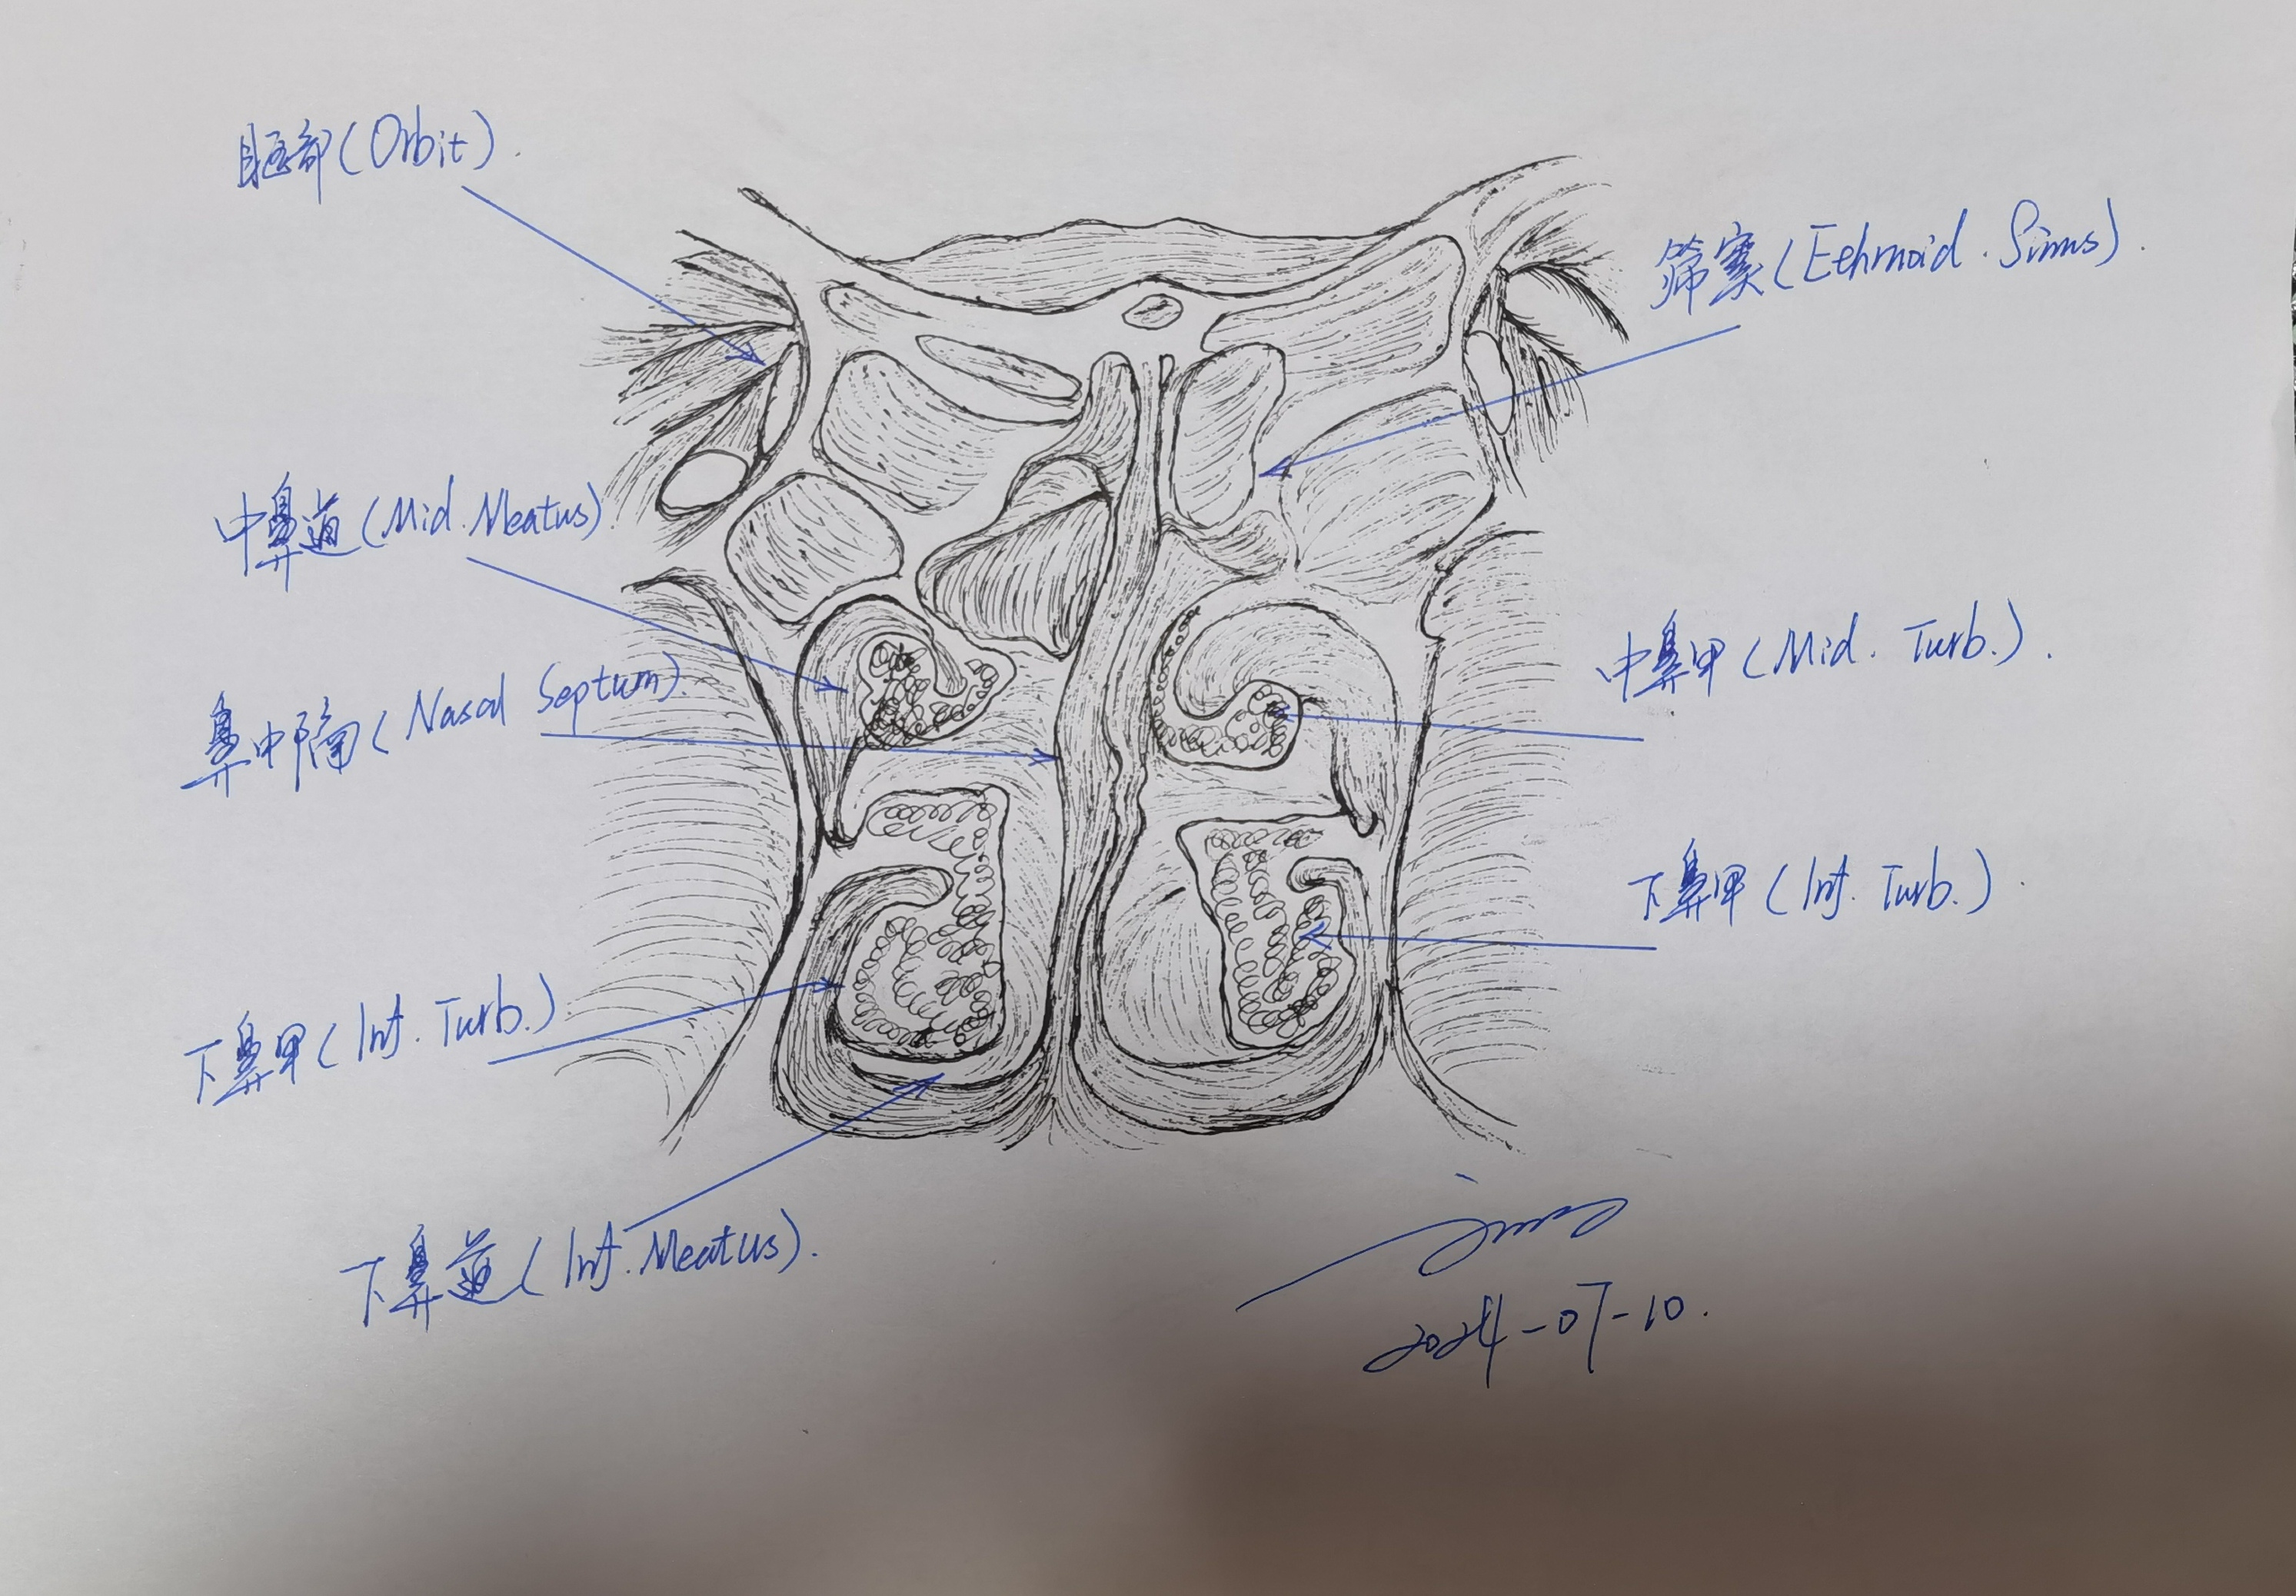 眶部(Orbit).
筛窦(Ethmoid. Sinus).
中鼻道(Mid. Meatus)
中鼻甲(Mid. Turb.).
鼻中隔(Nasal Septum).
下鼻甲(Inf. Turb.).
下鼻甲(Inf. Turb.)
下鼻道(Inf. Meatus).
2024-07-10.